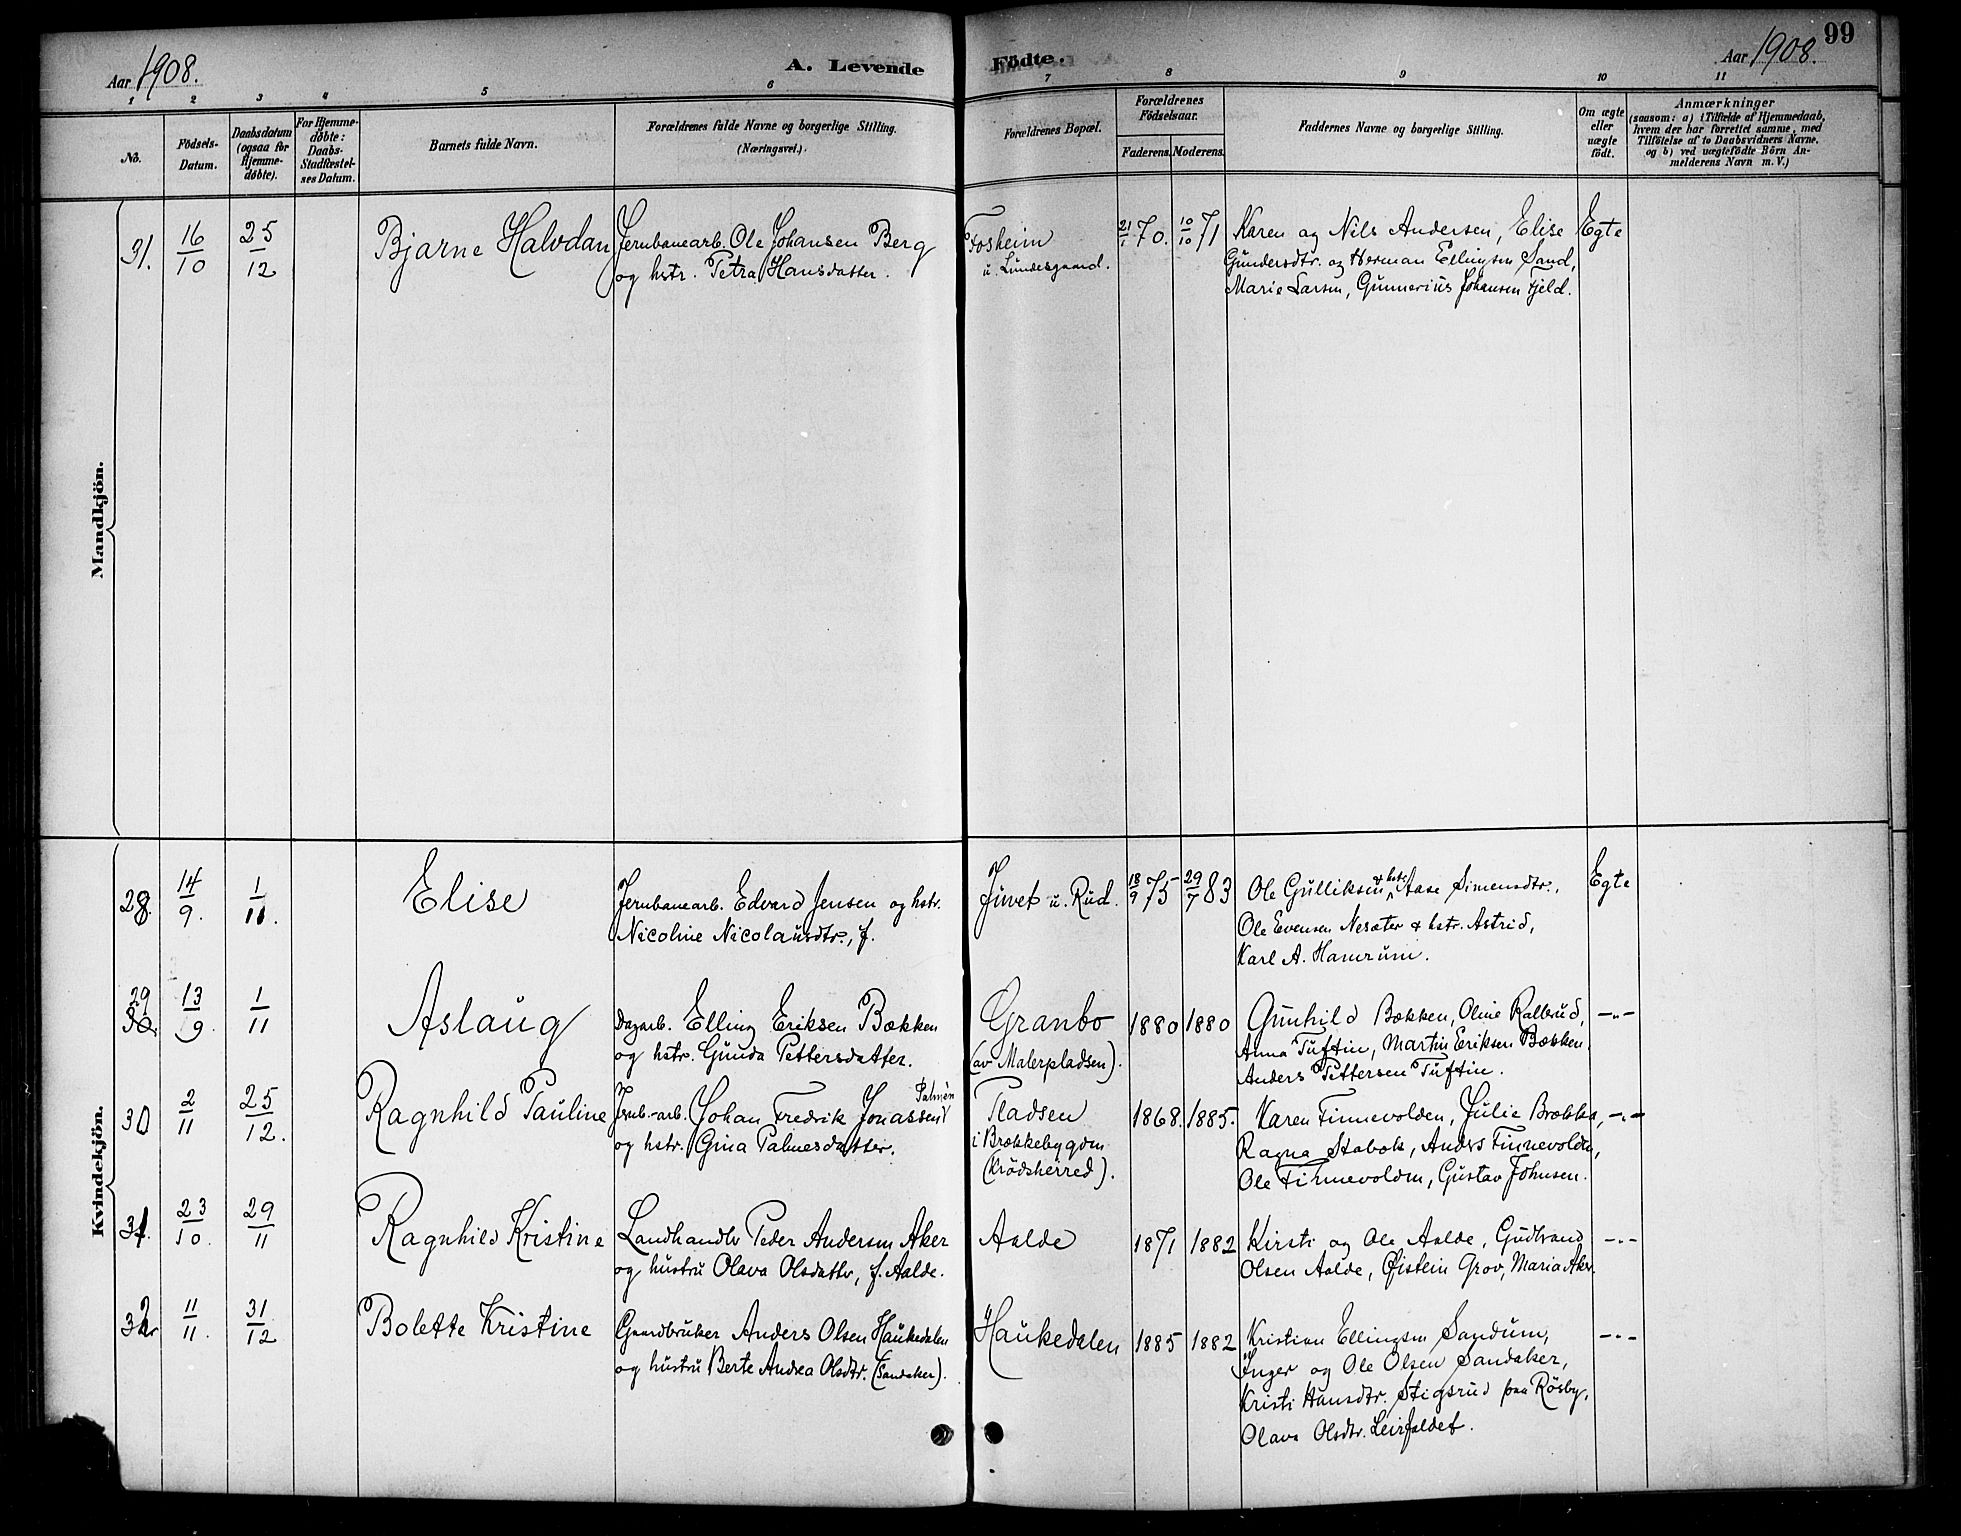 Aar 1908.
A. Levende
Fødte.
Aar 1908.
99
1 2 3 4 5 6 7 8 9 10 11
No.
Fødsels-
Datum.
Daabsdatum
(ogsaa for
Hjemme-
døbte).
For Hjemme-
døbte:
Daabs-
Stadfæstel-
ses Datum.
Barnets fulde Navn.
Forældrenes fulde Navne og borgerlige Stilling.
(Næringsvei.)
Forældrenes Bopæl.
Forældrenes
Fødselsaar.
Faderens. Moderens.
Faddernes Navne og borgerlige Stilling.
Om ægte
eller
uægte
født.
Anmærkninger
(saasom: a) i Tilfælde af Hjemmedaab,
hvem der har forrettet samme, med
Tilføielse af to Daabsvidners Navne,
og b) ved uægtefødte Børn An-
melderens Navn m. V.)
Mandkjön.
31. 16/10 25/12 Bjarne Halvdan Jernbanearb. Ole Johansen Berg Fosheim 21/1 70. 10/10 71 Karen og Nils Andersen, Elise Egte
og hstr. Petra Hansdatter. u. Lundesgaard. Gundersdtr. og Herman Ellingsen Sand,
Marie Larsen, Gunnerius Johansen Fjeld.
Kvindekjön.
28. 14/9. 1/11. Elise Jernbanearb. Edvard Jensen og hstr. Juvet u. Rud. 18/9 75 29/7 83 Ole Gulliksen & hstr. Aase Simensdtr., Egte
Nicoline Nicolausdtr., f. Ole Evensen Nesæter & hstr. Astrid,
Karl A. Hamrum.
29 30. 13/9 1/11 Aslaug Dagarb. Elling Eriksen Bækken Granbo 1880 1880 Gunhild Bækken, Oline Rallerud, -"-
og hstr. Gunda Pettersdatter. (av Malerpladsen). Anna Tuftin, Martin Eriksen Bækken,
Anders Pettersen Tuftin.
30 2/11 25/12. Ragnhild Pauline Jernb.-arb. Johan Fredrik Jonassen Palmén Pladsen 1868. 1885. Karen Finnevolden, Julie Brækka, -"-
og hstr. Gina Palmesdatter. i Brækkebygden Ragna Stabok, Anders Finnevolden,
(Krødsherred). Ole Finnevolden, Gustav Johnsen.
31. 23/10. 29/11 Ragnhild Kristine Landhandler Peder Andersen Aker Aalde 1871 1882 Kirsti og Ole Aalde, Gudbrand -"-
og hustru Olava Olsdatter, f. Aalde. Olsen Aalde, Øistein Grov, Maria Aker.
32 11/11. 31/12 Bolette Kristine Gaardbruker Anders Olsen Haukedalen Haukedalen 1885 1882 Kristian Ellingsen Sandum, -"-
og hustru Berte Andrea Olsdtr. (Sandaker). Inger og Ole Olsen Sandaker,
Kristi Hansdtr. Stigsrud paa Røsby,
Olava Olsdtr. Leirfaldet.